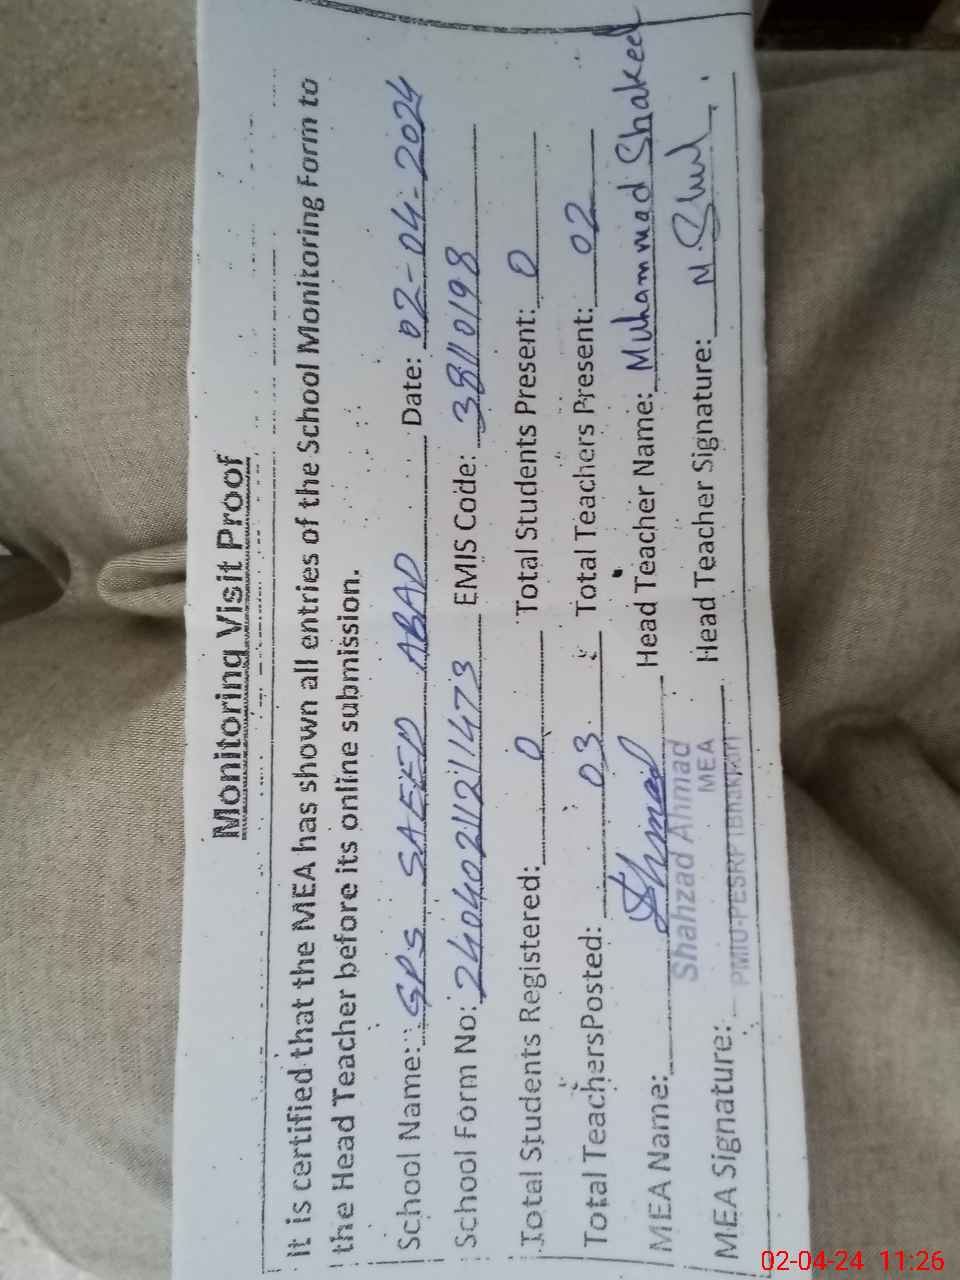 Monitoring Visit Proof
It is certified that the MEA has shown all entries of the School Monitoring Form to
the Head Teacher before its online submission.
School Name: GPS SAEED ABAD Date: 02-04-2024
School Form No: 24040211211473 EMIS Code: 38110198
Total Students Registered: 0 Total Students Present: 0
Total TeachersPosted: 03 Total Teachers Present: 02
MEA Name: Head Teacher Name: Muhammad Shakeel
Shahzad Ahmad
MEA
MEA Signature: PMIU-PESRP (Bhakkar) Head Teacher Signature:
02-04-24 11:26